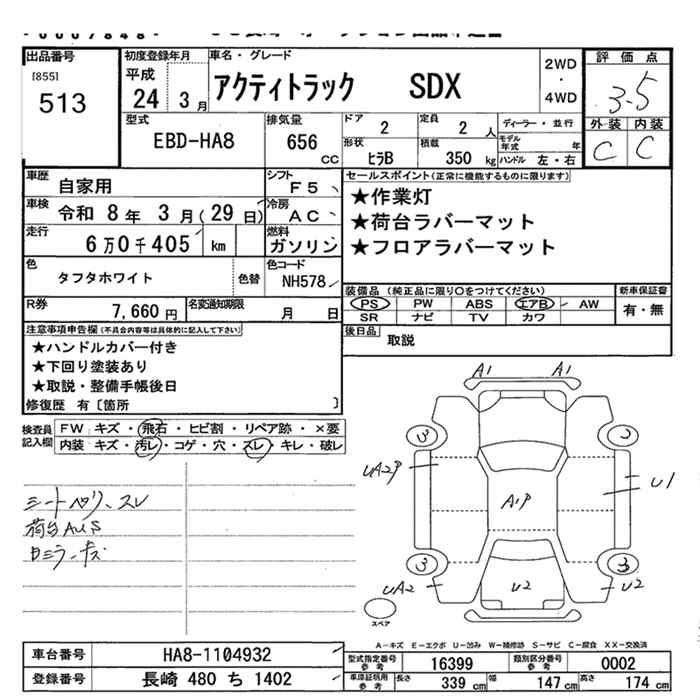 出品番号
[855]
513
初度登録年月
平成
24 3月
車名・グレード
アクティトラック SDX
2WD
・
4WD
評価点
3.5
外装 内装
C C
型式
EBD-HA8
排気量
656
cc
ドア
2
定員
2 人
ディーラー・並行
モデル年式 年
形状
ヒラB
積載
350 kg
ハンドル 左・右
車歴
自家用
シフト
F5
車検
令和 8年 3月(29日)
冷房
AC
走行
6万0千405 km
燃料
ガソリン
色
タフタホワイト
色替
色コード
NH578
R券
7,660円
名変通知期限
月 日
セールスポイント(正常に機能するものに限ります)
★作業灯
★荷台ラバーマット
★フロアラバーマット
装備品(純正品に限り○をつけてください)
新車保証書
PS PW ABS エアB AW
SR ナビ TV カワ
有・無
後日品
取説
注意事項申告欄(不具合内容等は具体的に記入して下さい)
★ハンドルカバー付き
★下回り塗装あり
★取説・整備手帳後日
修復歴 有[箇所 ]
検査員記入欄
FW キズ・飛石・ヒビ割・リペア跡・×要
内装 キズ・汚レ・コゲ・穴・スレ・キレ・破レ
荷台AUS
A1 A1
3 3
UA2P
A1P
U1
3 3
UA2
U2
U2
スペア
A-キズ E-エクボ U-凹み W-補修跡 S-サビ C-腐食 XX-交換済
車台番号
HA8-1104932
登録番号
長崎 480 ち 1402
型式指定番号
参考
16399
類別区分番号
参考
0002
車庫証明用
参考
長さ 339cm
幅 147cm
高さ 174cm